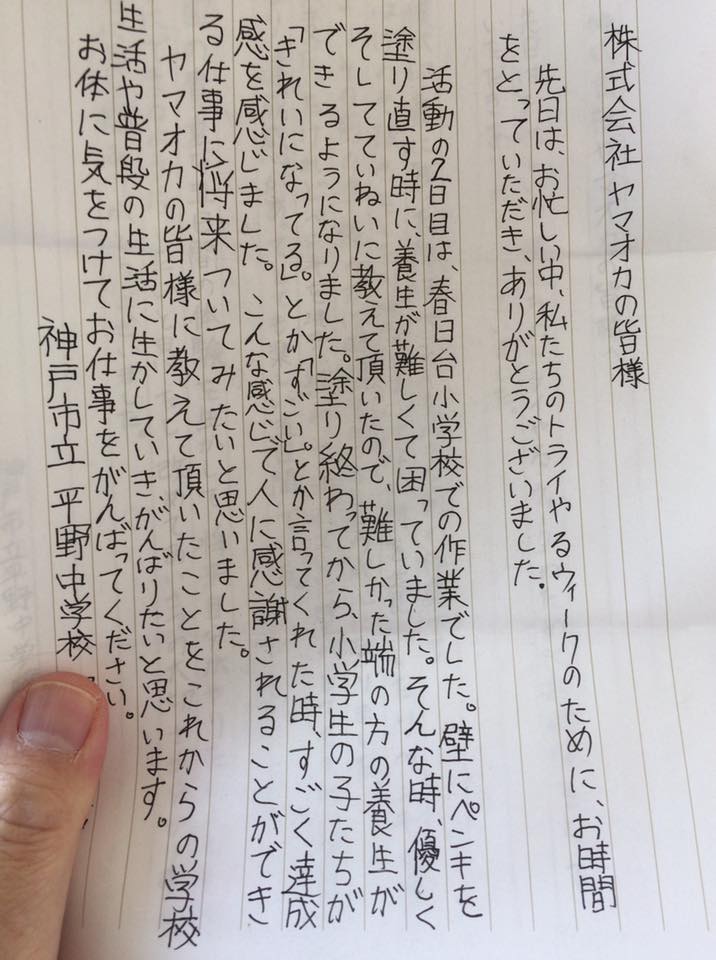 株式会社ヤマオカの皆様
先日は、お忙しい中、私たちのトライやるウィークのために、お時間
をとっていただき、ありがとうございました。
活動の2日目は、春日台小学校での作業でした。壁にペンキを
塗り直す時に、養生が難しくて困っていました。そんな時、優しく
そしてていねいに教えて頂いたので、難しかった端の方の養生が
できるようになりました。塗り終わってから、小学生の子たちが
「きれいになってる。」とか「すごい。」とか言ってくれた時、すごく達成
感を感じました。こんな感じで人に感謝されることができ
る仕事に将来ついてみたいと思いました。
ヤマオカの皆様に教えて頂いたことをこれからの学校
生活や普段の生活に生かしていき、がんばりたいと思います。
お体に気をつけてお仕事をがんばってください。
神戸市立 平野中学校